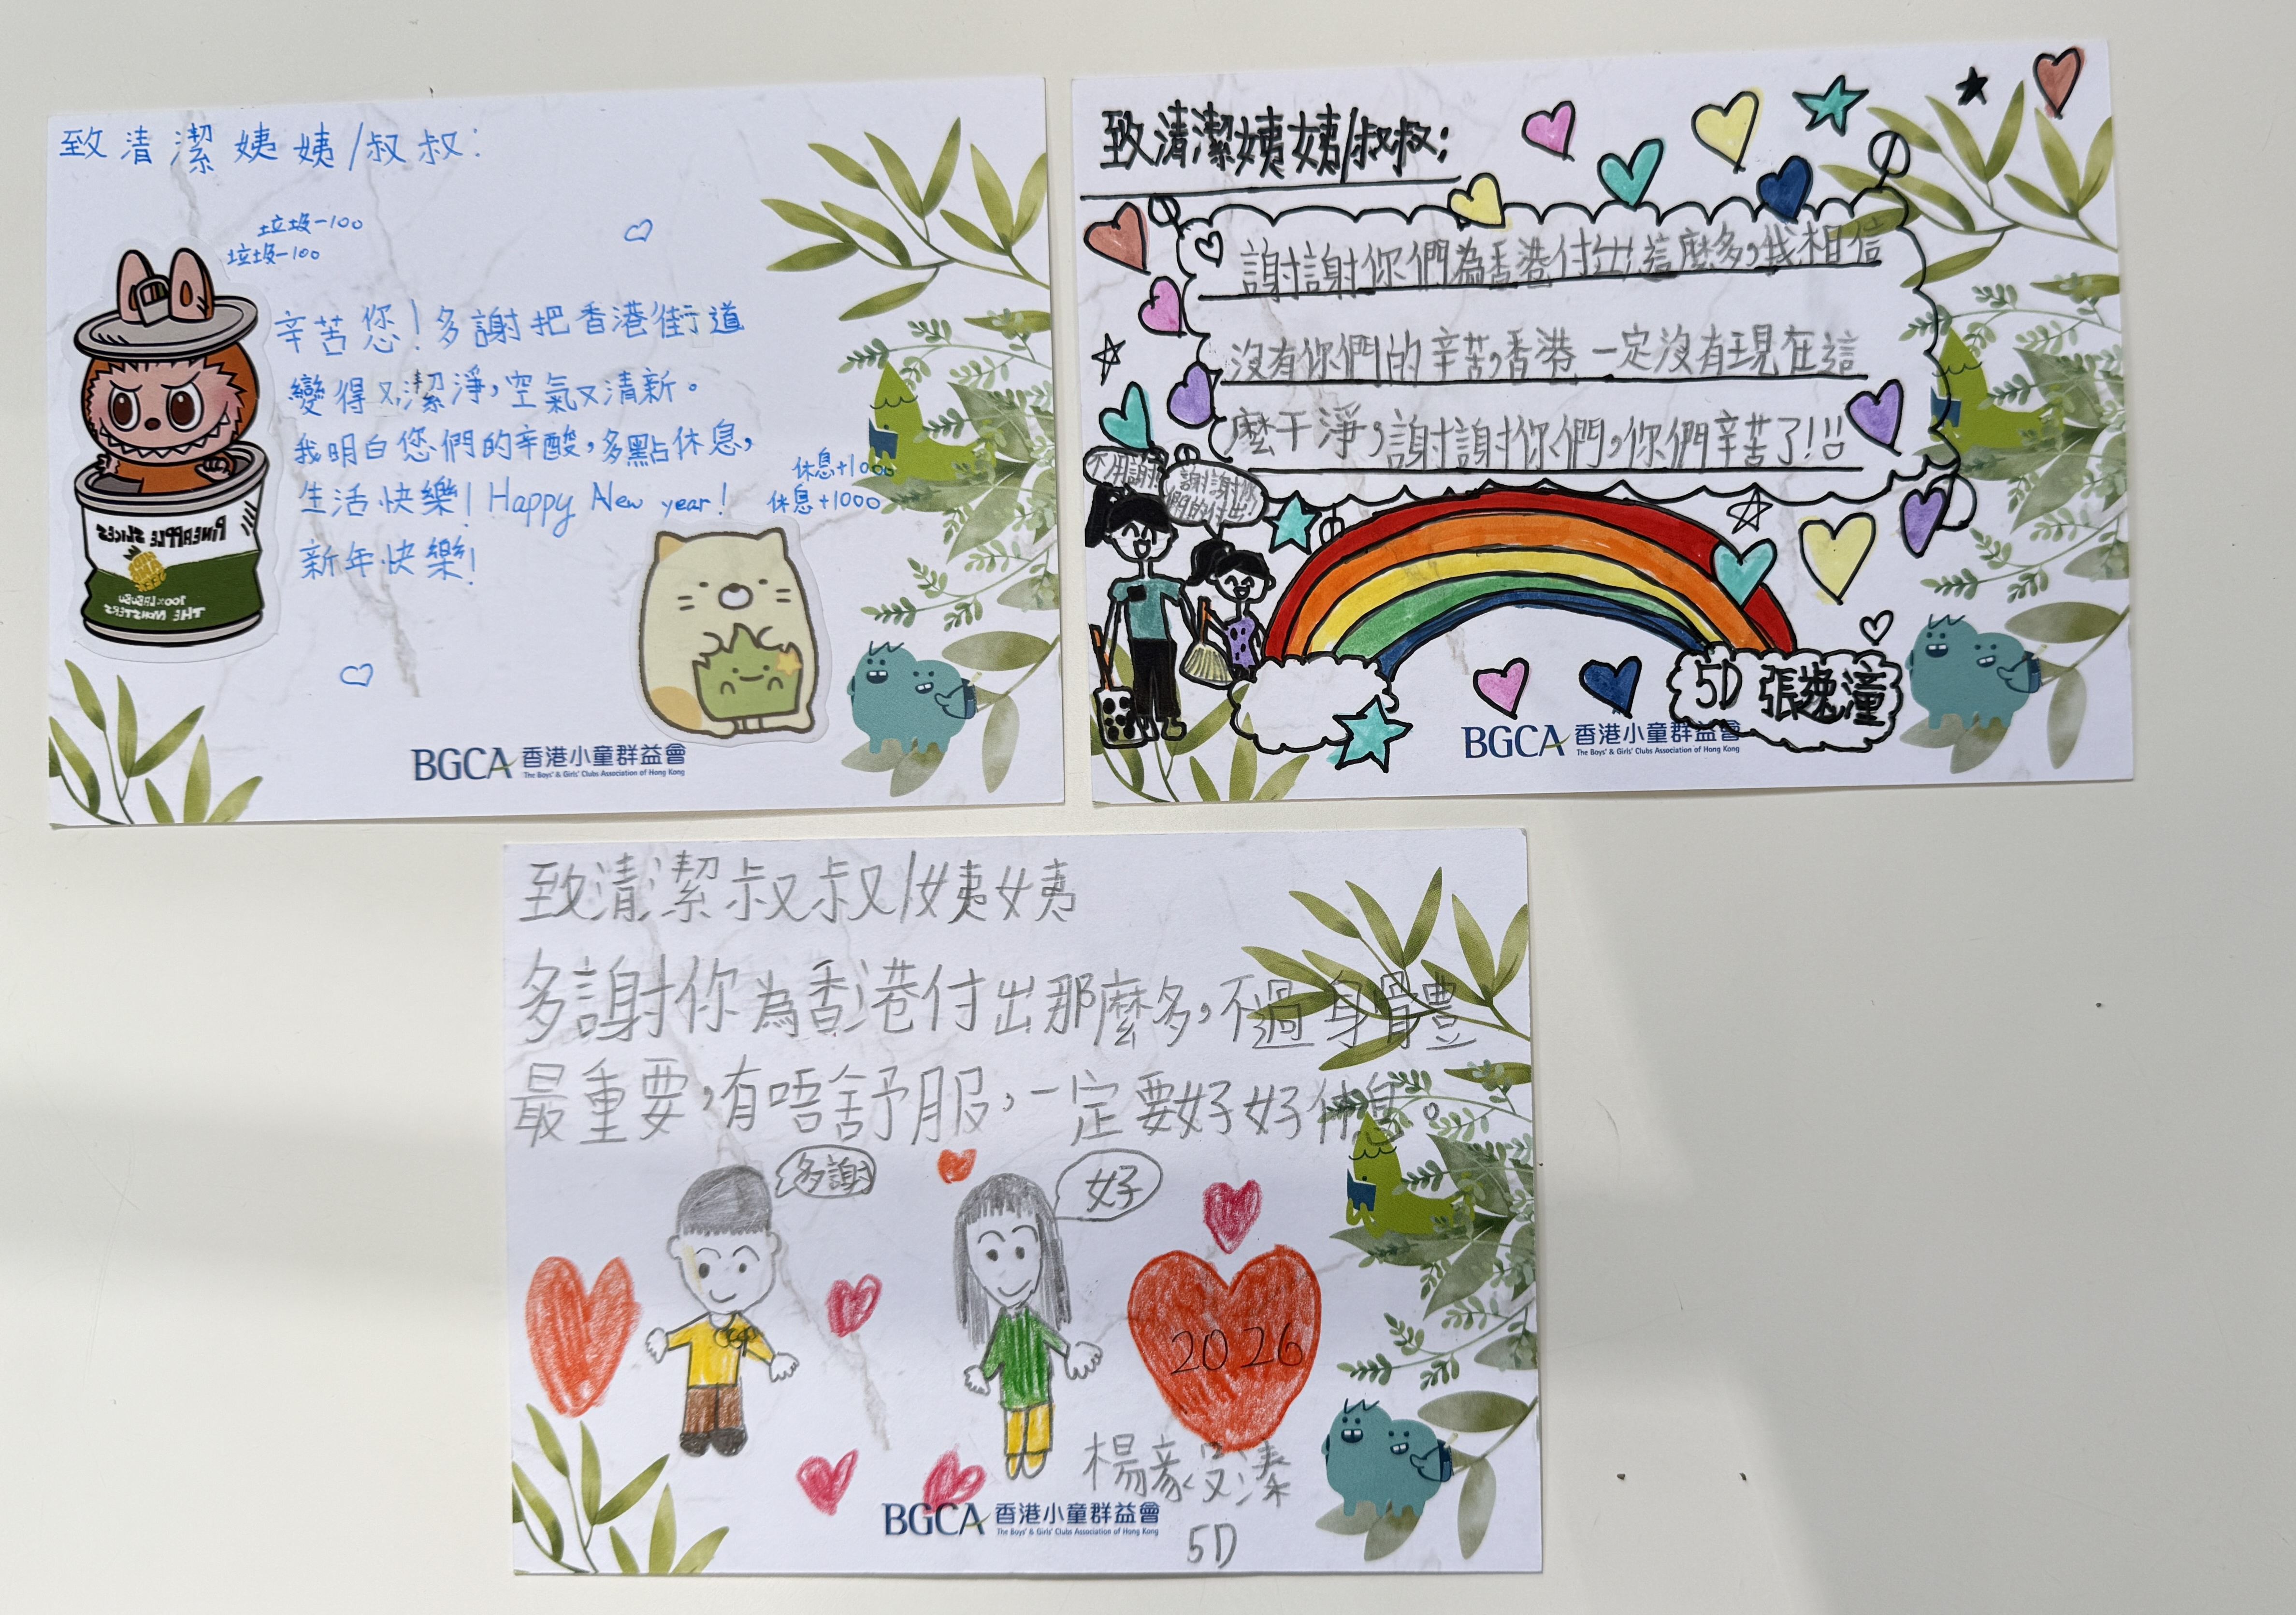 致清潔姨姨/叔叔:
垃圾-100
垃圾-100
辛苦您!多謝把香港街道
變得又潔淨,空氣又清新。
我明白您們的辛酸,多點休息,
生活快樂! Happy New year!
新年快樂!
休息+1000
休息+1000
PINEAPPLE SLICES
100% LABUBU
THE MONSTERS
BGCA 香港小童群益會
The Boys' & Girls' Clubs Association of Hong Kong
致清潔姨姨/叔叔:
謝謝你們為香港付出這麼多,我相信
沒有你們的辛苦,香港一定沒有現在這
麼干淨,謝謝你們,你們辛苦了!!!
不用謝!
謝謝你
們的付出!
5D 張逸潼
BGCA 香港小童群益會
The Boys' & Girls' Clubs Association of Hong Kong
致清潔叔叔/姨姨
多謝你為香港付出那麼多,不過身體
最重要,有唔舒服,一定要好好休息。
多謝
好
2026
楊
溱
5D
BGCA 香港小童群益會
The Boys' & Girls' Clubs Association of Hong Kong